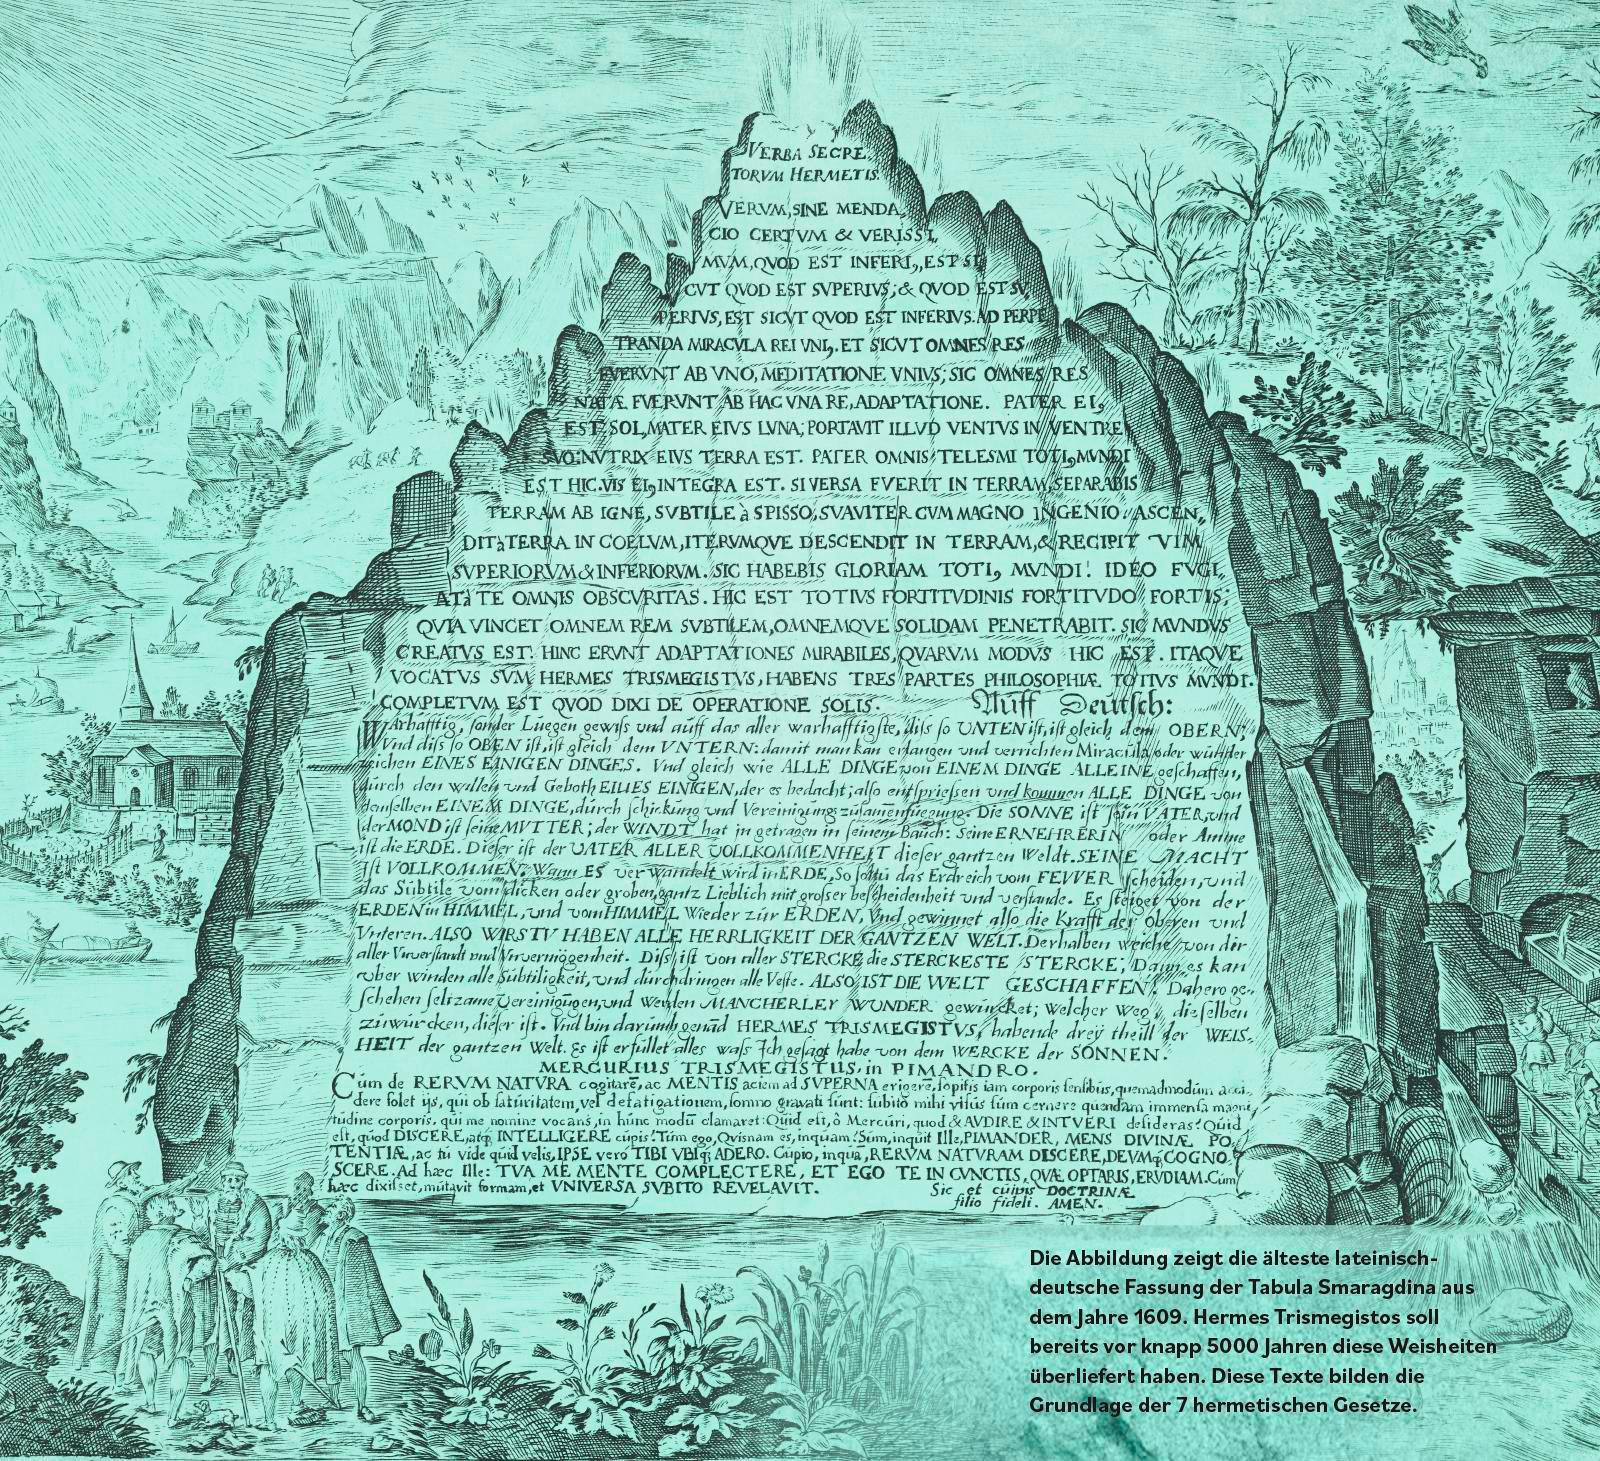 VERBA SECRE,
TORVM HERMETIS.
VERVM, SINE MENDA,
CIO CERTVM & VERISSI,
MVM, QVOD EST INFERI,, EST SI
CVT QVOD EST SVPERIVS; & QVOD EST SV,
PERIVS, EST SICVT QVOD EST INFERIVS. AD PERPE
TRANDA MIRACVLA REI VNI,. ET SICVT OMNES RES
FVERVNT AB VNO, MEDITATIONE VNIVS, SIC OMNES RES
NATÆ FVERVNT AB HAC VNA RE, ADAPTATIONE. PATER EI,
EST SOL, MATER EIVS LVNA; PORTAVIT ILLVD VENTVS IN VENTRE
SVO: NVTRIX EIVS TERRA EST. PATER OMNIS TELESMI TOTI, MVNDI
EST HIC. VIS EI, INTEGRA EST. SI VERSA FVERIT IN TERRAM, SEPARABIS
TERRAM AB IGNE, SVBTILE à SPISSO, SVAVITER CVM MAGNO INGENIO. ASCEN,
DIT à TERRA IN COELVM, ITERVMQVE DESCENDIT IN TERRAM, & RECIPIT VIM
SVPERIORVM & INFERIORVM. SIC HABEBIS GLORIAM TOTI, MVNDI. IDEO FVGI,
AT à TE OMNIS OBSCVRITAS. HIC EST TOTIVS FORTITVDINIS FORTITVDO FORTIS;
QVIA VINCET OMNEM REM SVBTILEM, OMNEMQVE SOLIDAM PENETRABIT. SIC MVNDVS
CREATVS EST. HINC ERVNT ADAPTATIONES MIRABILES, QVARVM MODVS HIC EST. ITAQVE
VOCATVS SVM HERMES TRISMEGISTVS, HABENS TRES PARTES PHILOSOPHIÆ TOTIVS MVNDI.
COMPLETVM EST QVOD DIXI DE OPERATIONE SOLIS. Auff Deutsch:
WArhafftig, sonder Lüegen gewiss und auff das aller warhafftigste, diss so UNTEN ist, ist gleich dem OBERN;
Vnd diss so OBEN ist, ist gleich dem VNTERN: damit man kan erlangen und verrichten Miracula oder wunder
zeichen EINES EINIGEN DINGES. Vnd gleich wie ALLE DINGE von EINEM DINGE ALLEINE geschaffen,
durch den willen und Geboth EINES EINIGEN, der es bedacht; also entspriessen und kommen ALLE DINGE von
demselben EINEM DINGE, durch schickung und Vereinigung zusammenfuegung. Die SONNE ist sein VATER, und
der MOND ist seine MVTTER; der WINDT hat jn getragen in seinem Bauch: Seine ERNEHRERIN oder Amme
ist die ERDE. Dieser ist der VATER ALLER VOLLKOMMENHEIT dieser gantzen Weldt. SEINE MACHT
Ist VOLLKOMMEN; Wann ES verwandelt wird in ERDE, So soltu das Erdreich vom FEVVER scheiden, und
das Subtile vom dicken oder groben, gantz Lieblich mit groser bescheidenheit und verstande. Es steiget von der
ERDEN in HIMMEL, und vom HIMMEL Wieder zur ERDEN, Vnd gewinnet also die Krafft der Oberen und
Vnteren. ALSO WIRSTV HABEN ALLE HERRLIGKEIT DER GANTZEN WELT. Derhalben weiche von dir
aller Vnverstandt und Vnvermögenheit. Diss ist von aller STERCKE die STERCKESTE STERCKE; Dann es kan
vber winden alle Subtiligkeit, und durchdringen alle Veste. ALSO IST DIE WELT GESCHAFFEN. Dahero ge,
schehen seltzame Vereinigungen, und werden MANCHERLEY WUNDER gewürcket; Welcher Weg, dieselben
zuwürcken, dieser ist. Vnd bin darumb genād HERMES TRISMEGISTVS, habende dreÿ theill der WEIS,
HEIT der gantzen Welt. Es ist erfüllet alles wass Ich gesagt habe von dem WERCKE der SONNEN.
MERCURIUS TRISMEGISTUS, in PIMANDRO.
Cùm de RERVM NATVRA cogitarē, ac MENTIS aciem ad SVPERNA erigere, sopitis iam corporis sensibus, quemadmodùm acci,
dere solet ijs, qui ob saturitatem, vel defatigationem, somno gravati sunt: subitò mihi visus sum cernere quendam immensa magni
tudine corporis, qui me nomine vocans, in hunc modū clamaret: Quid est, ô Mercuri, quod & AVDIRE & INTVERI desideras? Quid
est, quod DISCERE, atq; INTELLIGERE cupis? Tùm ego, Quisnam es, inquam? Sum, inquit Ille, PIMANDER, MENS DIVINÆ PO,
TENTIÆ, ac tu vide quid velis, IPSE verò TIBI VBIq; ADERO. Cupio, inquā, RERVM NATVRAM DISCERE, DEVMq; COGNO,
SCERE. Ad hæc Ille: TVA ME MENTE COMPLECTERE, ET EGO TE IN CVNCTIS, QVÆ OPTARIS, ERVDIAM. Cùm
hæc dixisset, mutavit formam, et VNIVERSA SVBITO REVELAVIT.
Sic et cuivis DOCTRINÆ
filio fideli. AMEN.
Die Abbildung zeigt die älteste lateinisch-
deutsche Fassung der Tabula Smaragdina aus
dem Jahre 1609. Hermes Trismegistos soll
bereits vor knapp 5000 Jahren diese Weisheiten
überliefert haben. Diese Texte bilden die
Grundlage der 7 hermetischen Gesetze.